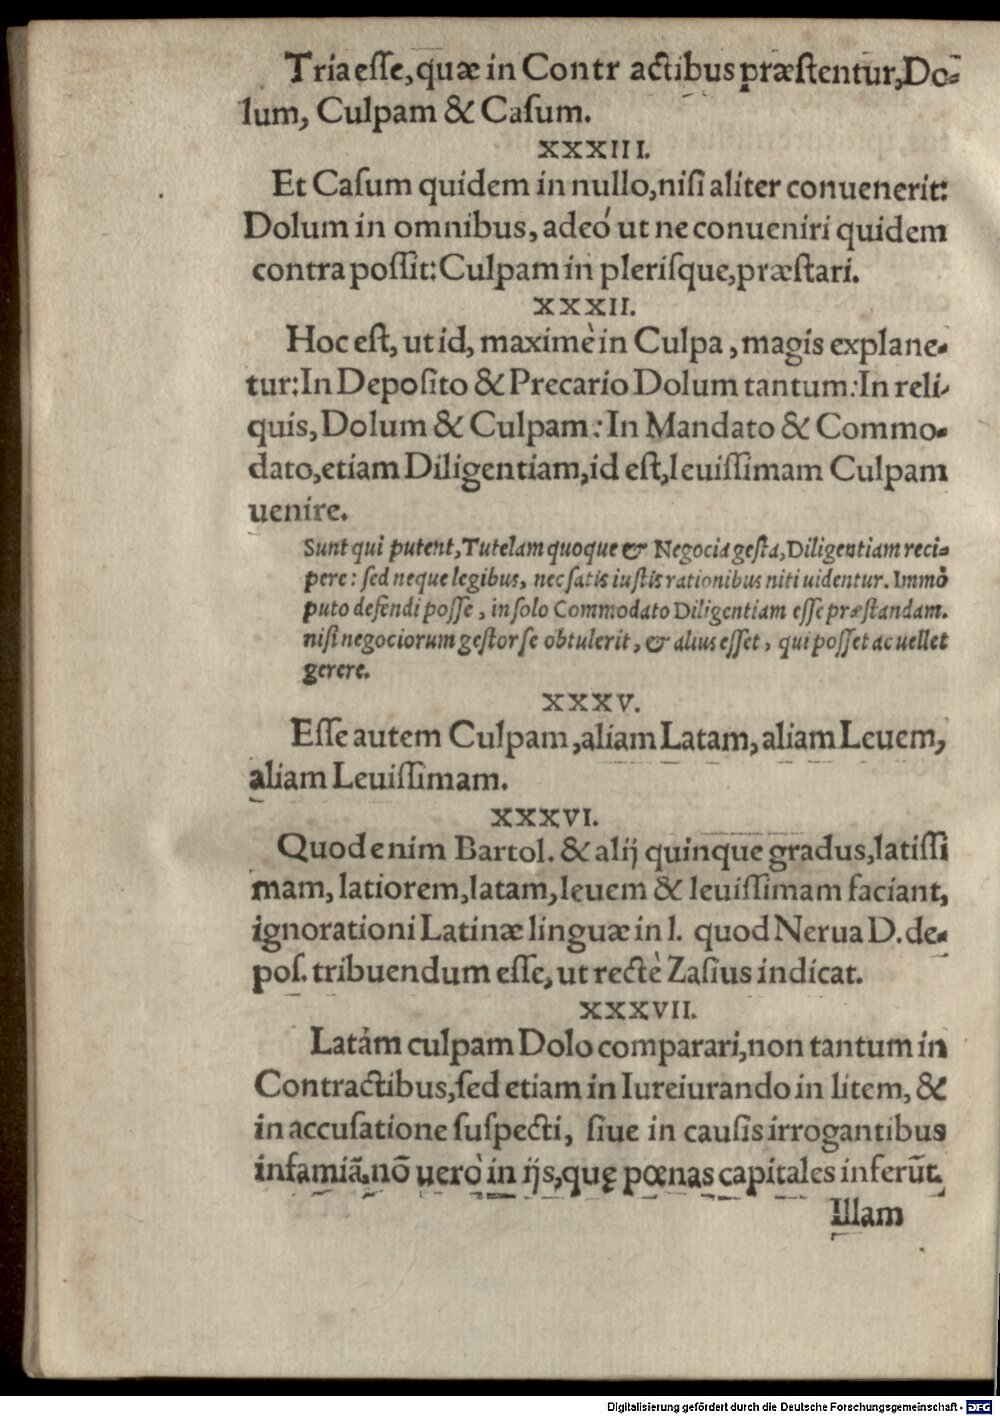 Tria esse, quæ in Contr actibus præstentur, Do-
lum, Culpam & Casum.
XXXIII.
Et Casum quidem in nullo, nisi aliter conuenerit:
Dolum in omnibus, adeó ut ne conueniri quidem
contra possit: Culpam in plerisque, præstari.
XXXII.
Hoc est, ut id, maximè in Culpa, magis explane-
tur: In Deposito & Precario Dolum tantum: In reli-
quis, Dolum & Culpam: In Mandato & Commo-
dato, etiam Diligentiam, id est, leuissimam Culpam
uenire.
Sunt qui putent, Tutelam quoque & Negocia gesta, Diligentiam reci-
pere: sed neque legibus, nec satis iustis rationibus niti uidentur. Immò
puto defendi posse, in solo Commodato Diligentiam esse præstandam.
nisi negociorum gestor se obtulerit, & alius esset, qui posset ac uellet
gerere.
XXXV.
Esse autem Culpam, aliam Latam, aliam Leuem,
aliam Leuissimam.
XXXVI.
Quod enim Bartol. & alij quinque gradus, latissi
mam, latiorem, latam, leuem & leuissimam faciant,
ignorationi Latinæ linguæ in l. quod Nerua D. de-
pos. tribuendum esse, ut rectè Zasius indicat.
XXXVII.
Latam culpam Dolo comparari, non tantum in
Contractibus, sed etiam in Iureiurando in litem, &
in accusatione suspecti, siue in causis irrogantibus
infamiã, nõ uerò in ijs, quę pœnas capitales inferũt.
Illam
Digitalisierung gefördert durch die Deutsche Forschungsgemeinschaft - DFG